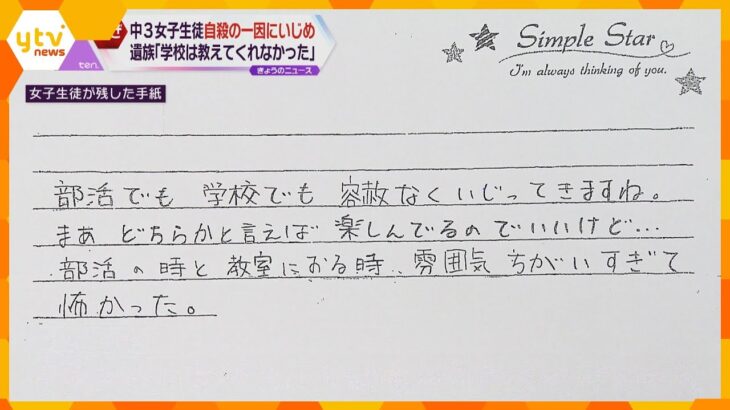 ytv
news
中3女子生徒自殺の一因にいじめ
遺族「学校は教えてくれなかった」
ten.
きょうのニュース
女子生徒が残した手紙
Simple Star
I'm always thinking of you.
部活でも 学校でも 容赦なくいじってきますね。
まあ どちらかと言えば 楽しんでるのでいいけど…
部活の時と 教室におる時、雰囲気 ちがいすぎて
怖かった。